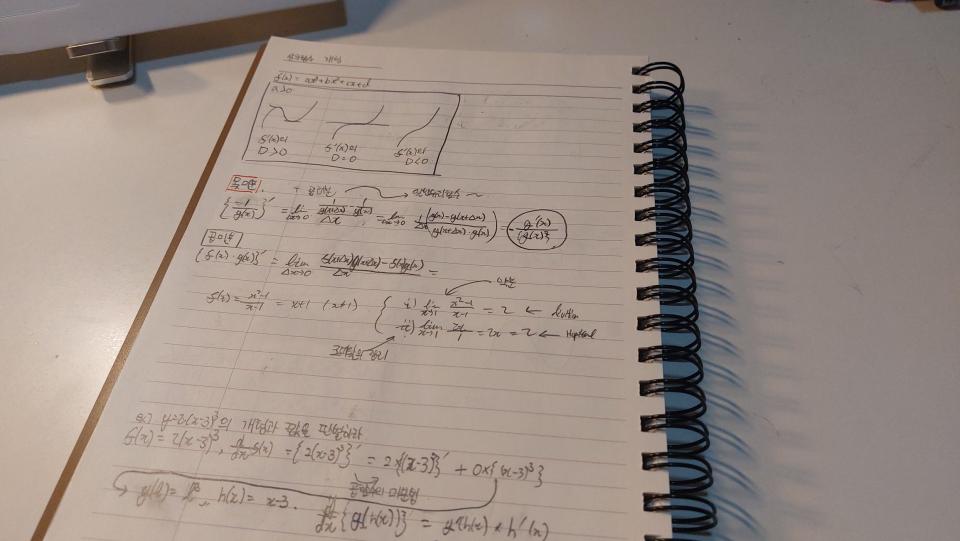 삼차함수 개형
f(x) = ax³+bx²+cx+d
a>0
f'(x)의 f'(x)의 f'(x)의
D>0 D=0 D<0
몫미분. + 곱미분 → 합성함수 ~
{1/g(x)}' = lim Δx→0 (1/g(x+Δx) - 1/g(x))/Δx, = lim Δx→0 1/Δx (g(x)-g(x+Δx) / g(x+Δx)·g(x)) = - g'(x)/{g(x)}²
곱미분
{f(x)·g(x)}' = lim Δx→0 (f(x+Δx)g(x+Δx) - f(x)g(x))/Δx =
약분
f(x) = (x²-1)/(x-1) = x+1 (x≠1) { i) lim x→1 (x²-1)/(x-1) = 2 ←
ii) lim x→1 2x/1 = 2x = 2 ←
로피탈의 정리
ex) y=2(x-3)³의 개형과 을 하라
f(x) = 2(x-3)³, d/dx f(x) = {2(x-3)³}' = 2×{(x-3)³}' + 0×{(x-3)³}
합성함수의 미분형
→ g(x) = x³, h(x) = x-3. d/dx {g(h(x))}' = g'(h(x)) × h'(x)